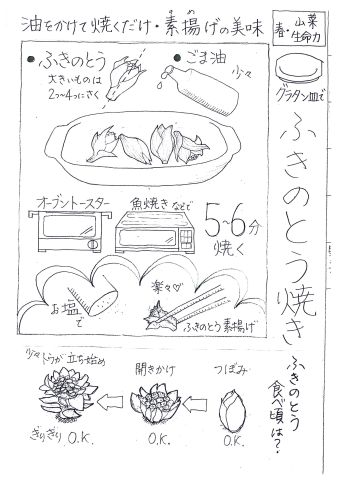 油をかけて焼くだけ・素揚げの美味
春・山菜
生命力
グラタン皿で
ふきのとう焼き
・ふきのとう
大きいものは
2つ〜4つにさく
・ごま油
少々
オーブントースター
魚焼きなどで
5〜6分
焼く
お塩で
楽々♡
ふきのとう素揚げ
ふきのとう
食べ頃は?
少々トウが立ち始め
開きかけ
つぼみ
ぎりぎり O.K.
O.K.
O.K.